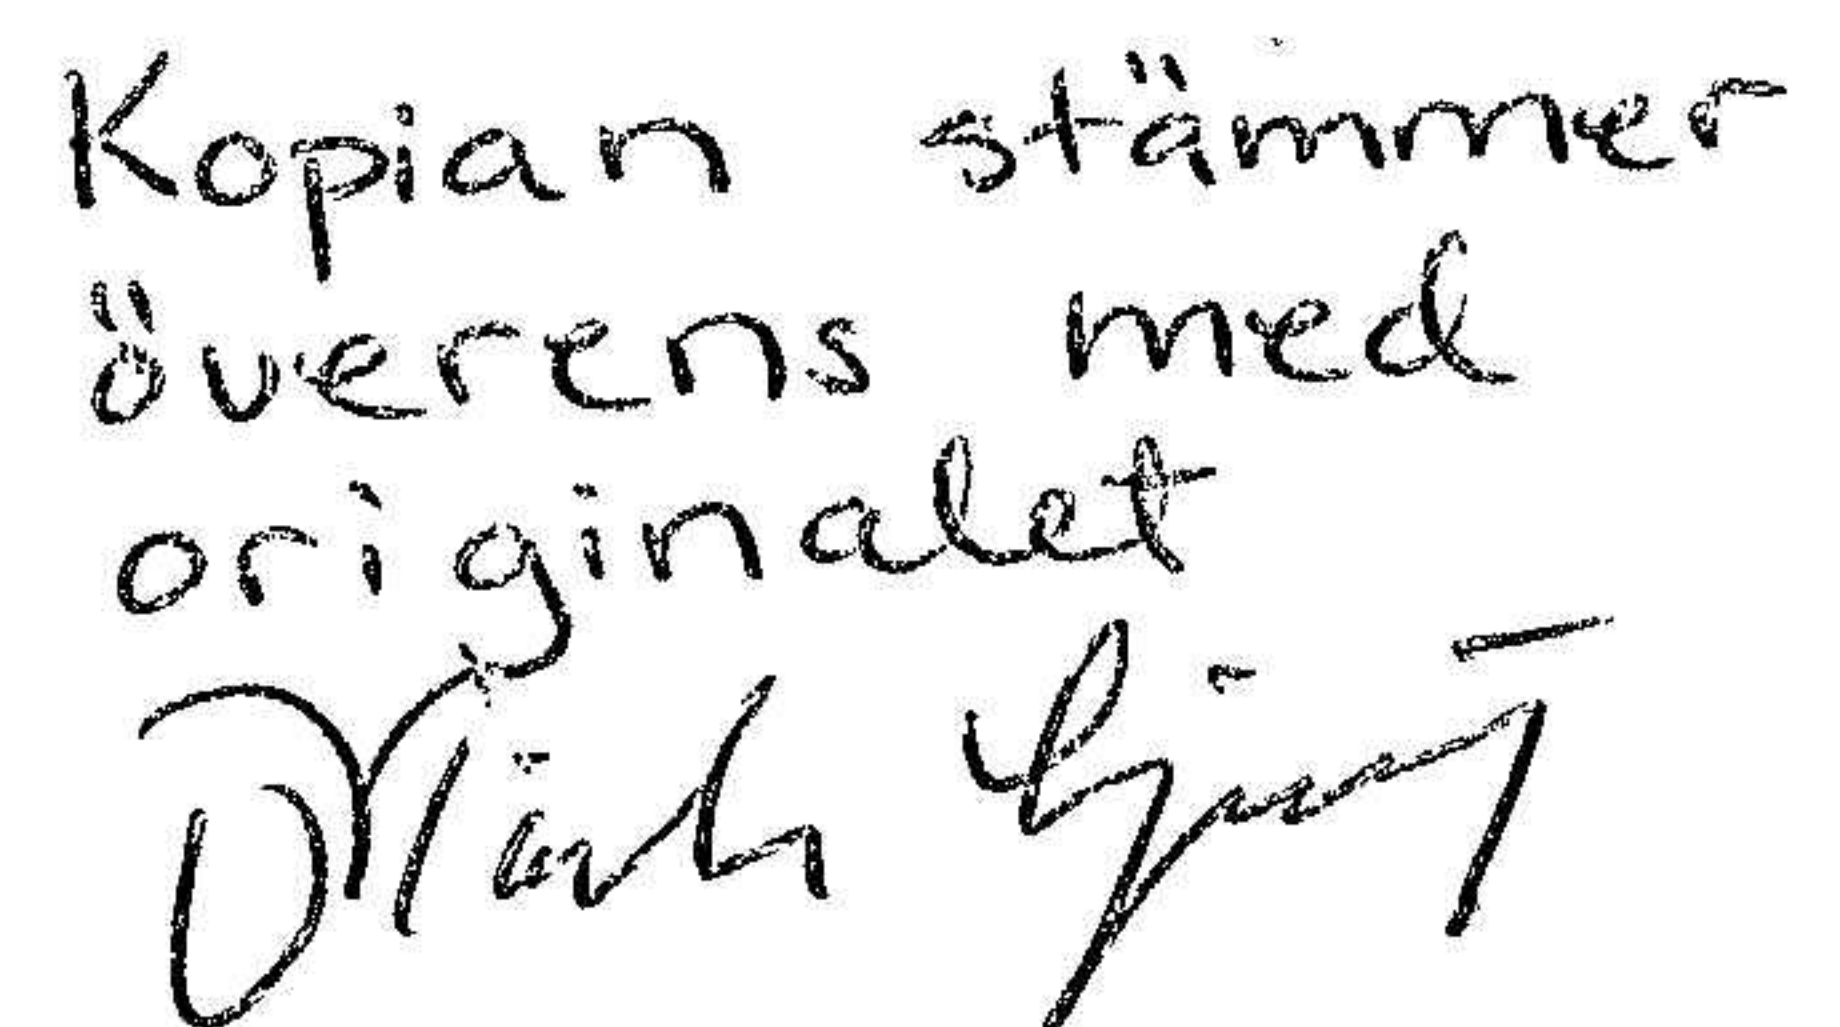 Kopian stämmer
överens med
originalet